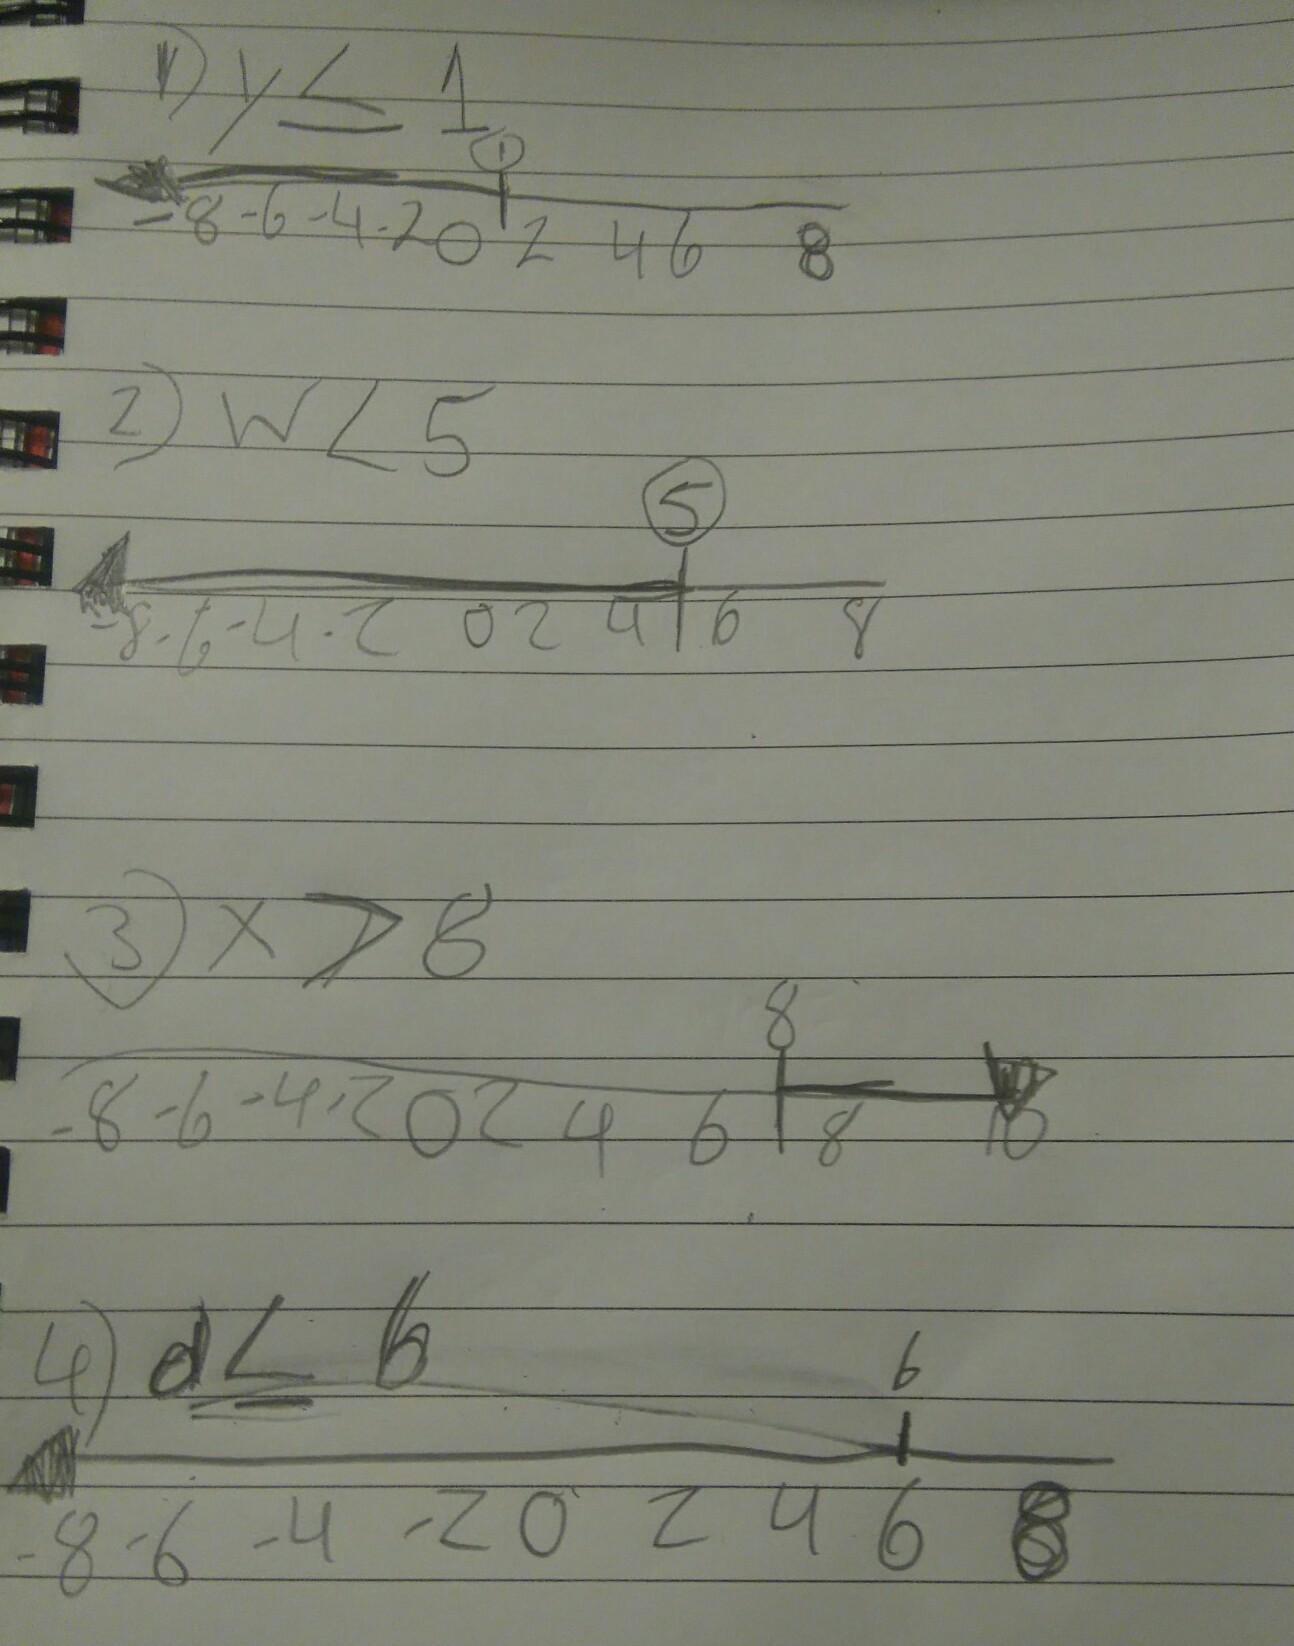 1) y ≤ 1
1
-8 -6 -4 -2 0 2 4 6 8
2) W < 5
5
-8 -6 -4 -2 0 2 4 6 8
3) x > 8
8
-8 -6 -4 -2 0 2 4 6 8 10
4) d ≤ 6
6
-8 -6 -4 -2 0 2 4 6 8